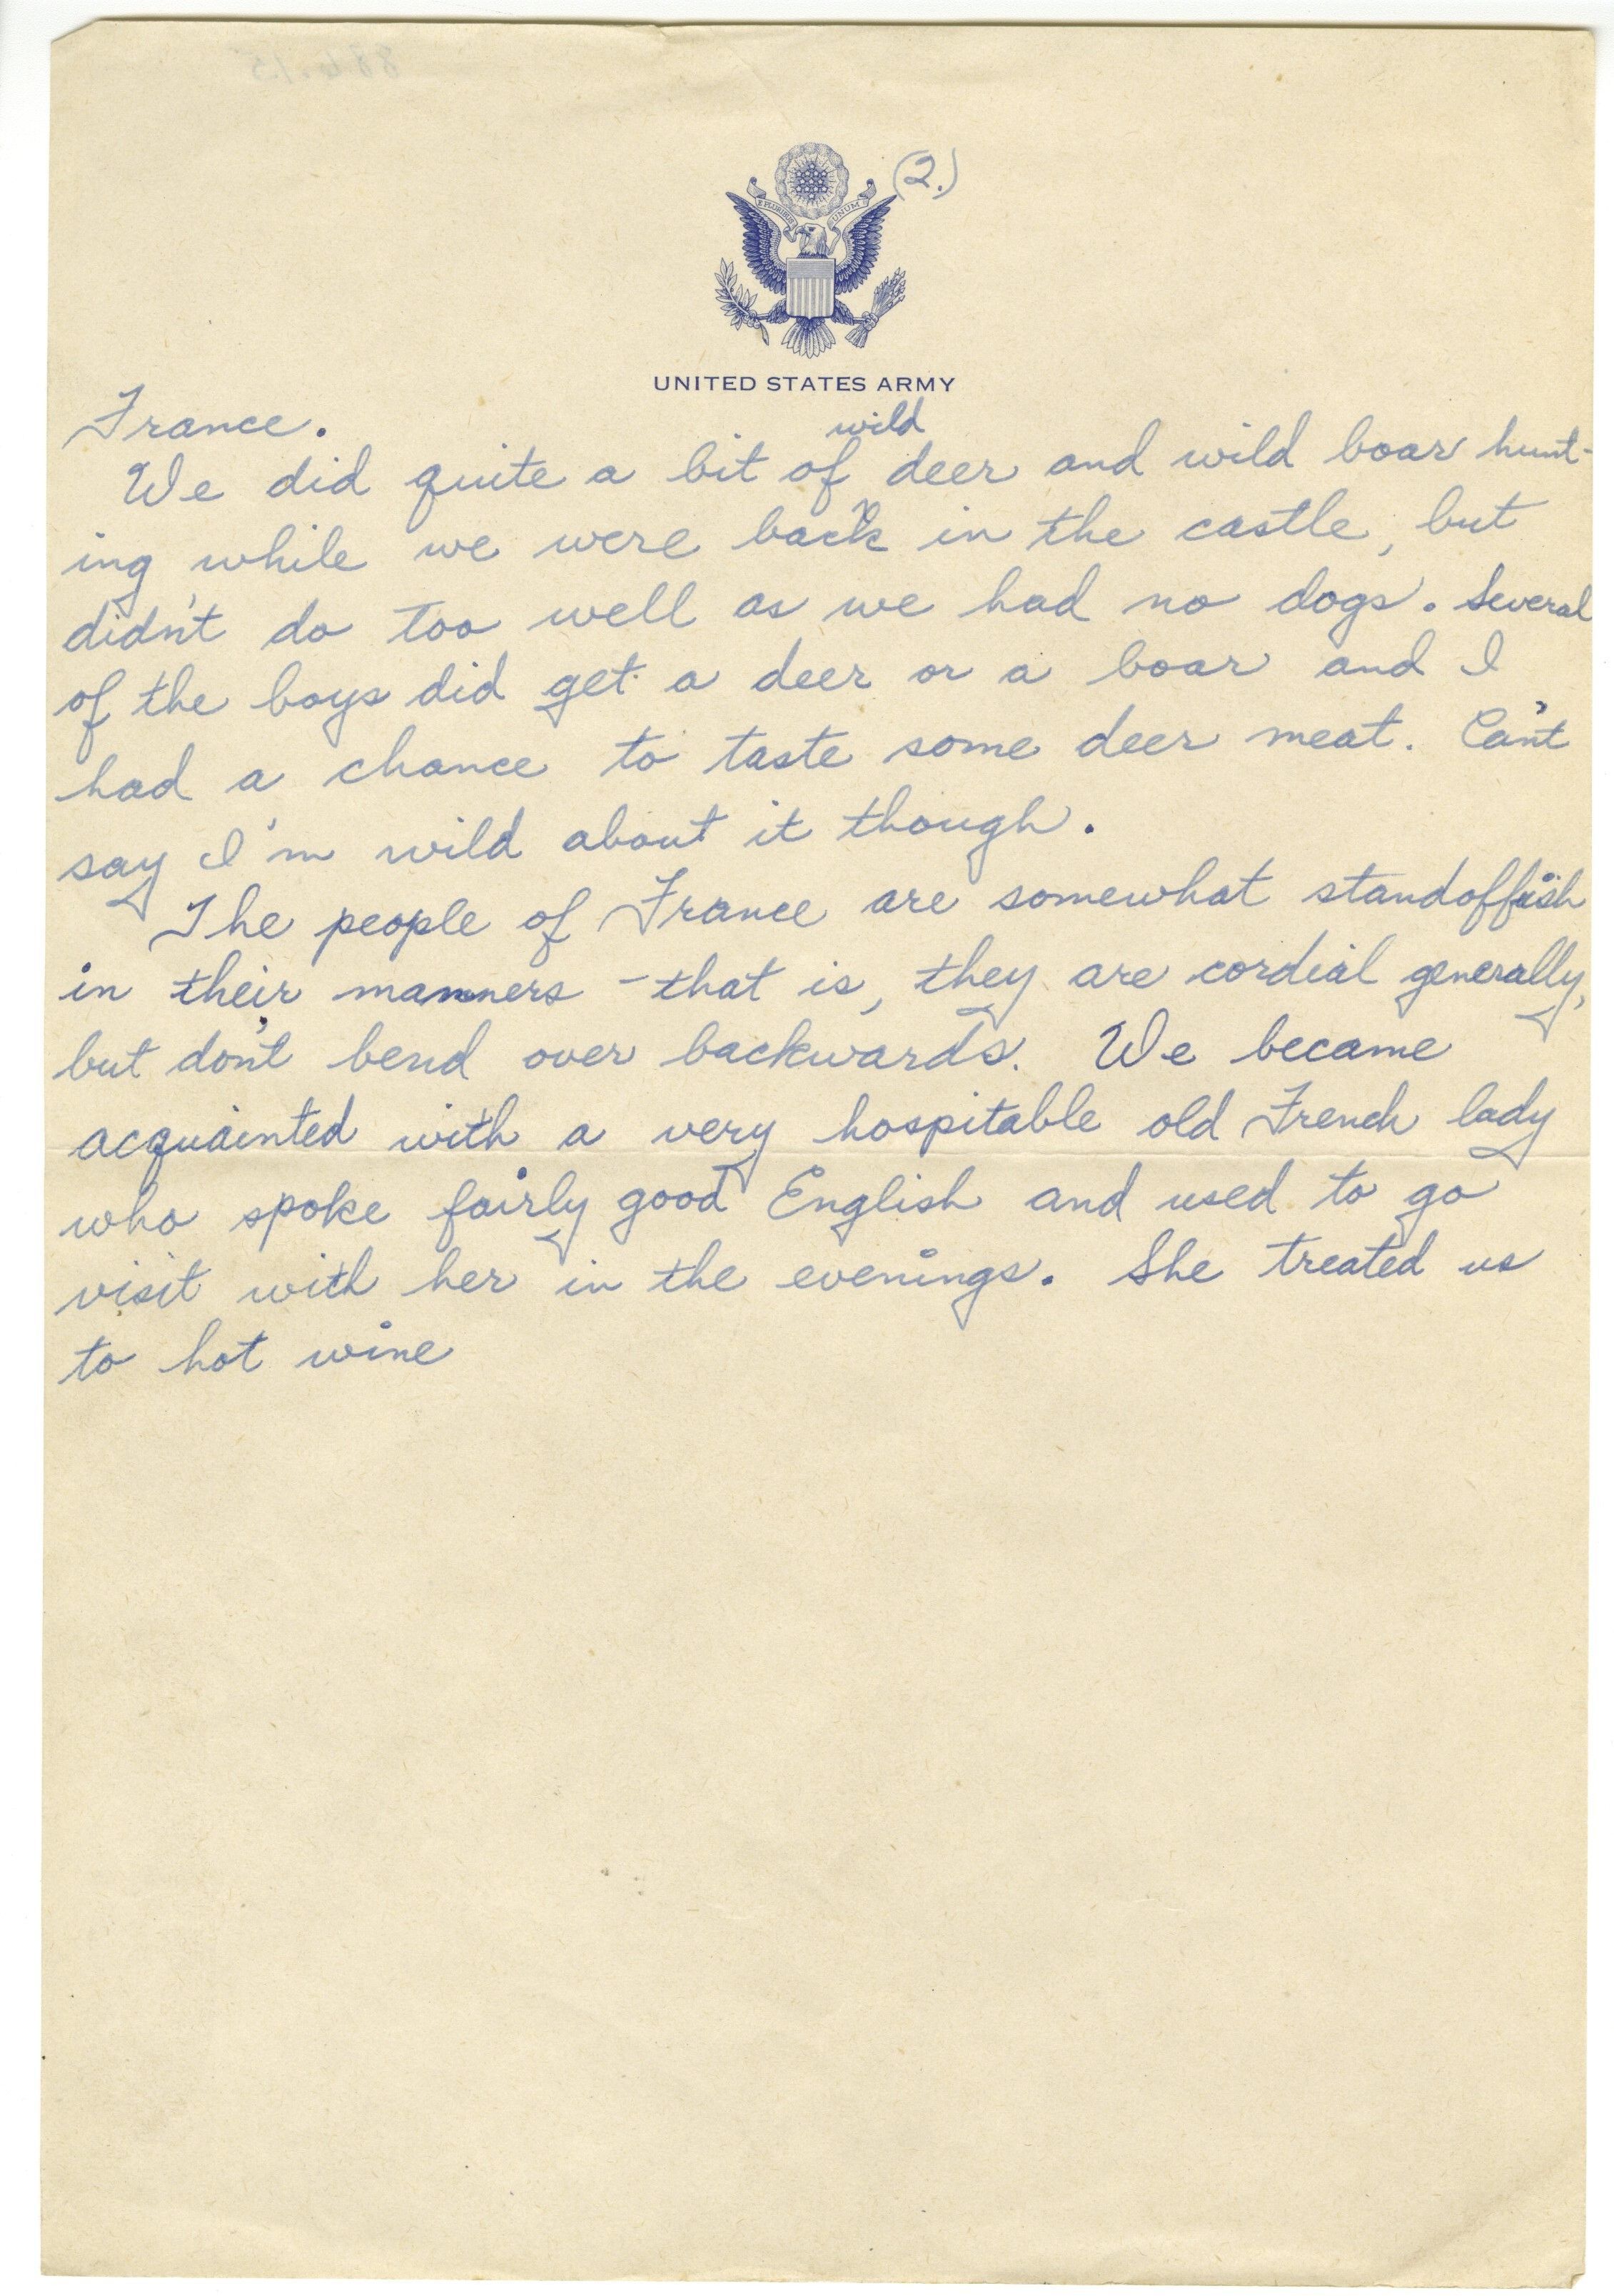 (2.)
E PLURIBUS UNUM
UNITED STATES ARMY
France.
wild
We did quite a bit of deer and wild boar hunt-
ing while we were back in the castle, but
didn't do too well as we had no dogs. Several
of the boys did get a deer or a boar and I
had a chance to taste some deer meat. Can't
say I'm wild about it though.
The people of France are somewhat standoffish
in their manners - that is, they are cordial generally,
but don't bend over backwards. We became
acquainted with a very hospitable old French lady
who spoke fairly good English and used to go
visit with her in the evenings. She treated us
to hot wine